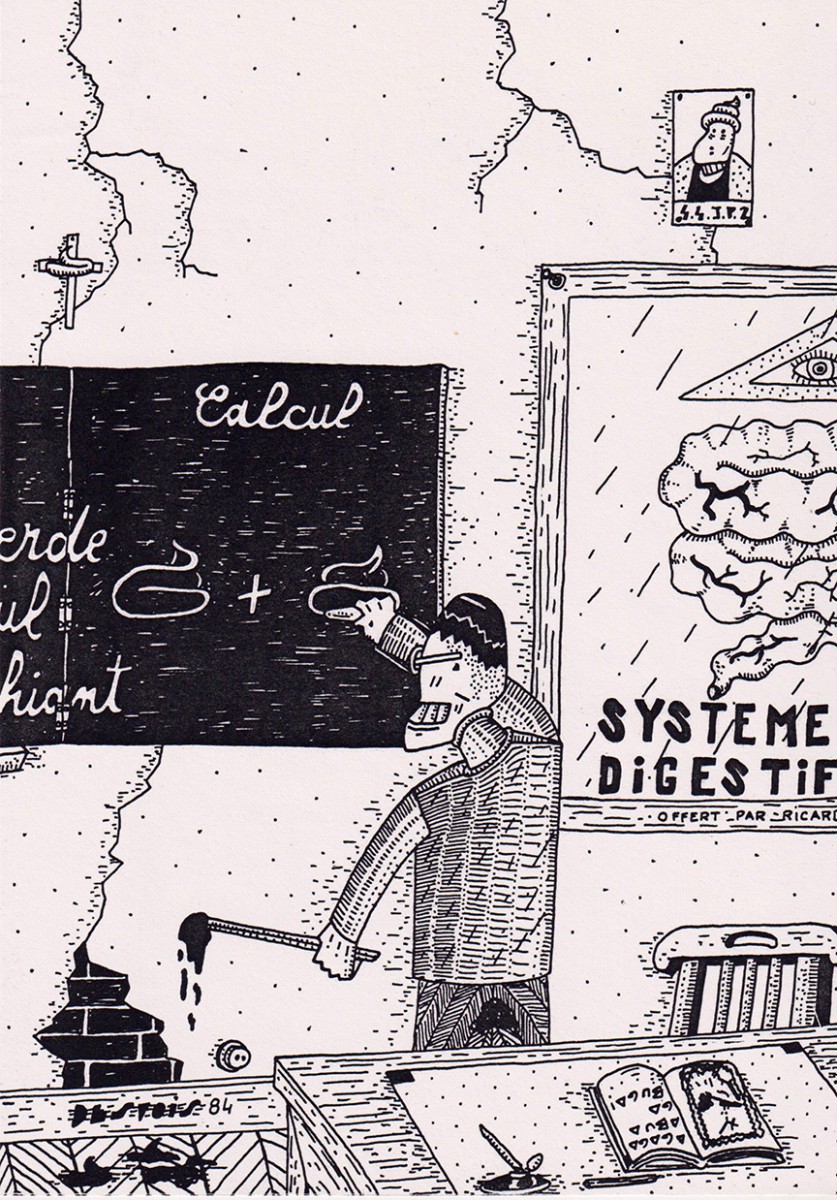 Calcul
erde
ul
hiant
+
SYSTEME
DiGESTiF
OFFERT PAR RICARD
84